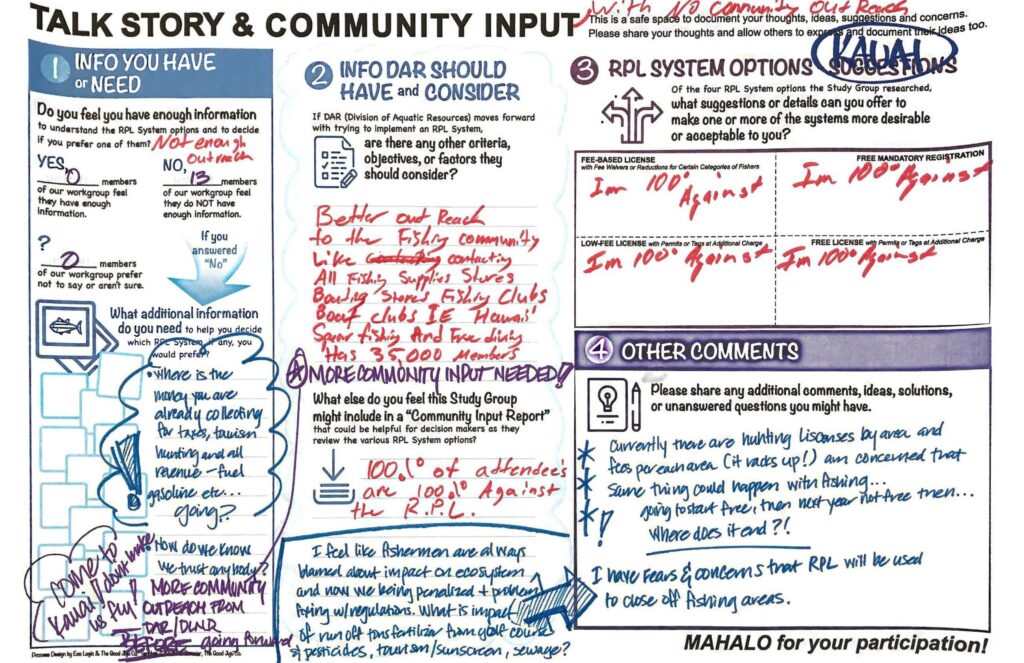 TALK STORY & COMMUNITY INPUT
With NO Community Out Reach
This is a safe space to document your thoughts, ideas, suggestions and concerns.
Please share your thoughts and allow others to express and document their ideas too.
KAUAI
1 INFO YOU HAVE
or NEED
Do you feel you have enough information
to understand the RPL System options and to decide
if you prefer one of them?
Not enough
outreach
YES, 0 members
of our workgroup feel
they have enough
information.
NO, 13 members
of our workgroup feel
they do NOT have
enough information.
?
0 members
of our workgroup prefer
not to say or aren't sure.
If you
answered
"No"
What additional information
do you need to help you decide
which RPL System, if any, you
would prefer?
• Where is the
money you are
already collecting
for taxes, tourism
hunting and all
revenue - fuel
gasoline etc...
going?
!
How do we know
we trust anybody?
MORE COMMUNITY
OUTREACH FROM
DAR/DLNR
BEFORE going forward
come to
Kauai/
is fun!
Process Design by Eao Logic & The Good Jujo Co.
2 INFO DAR SHOULD
HAVE and CONSIDER
If DAR (Division of Aquatic Resources) moves forward
with trying to implement an RPL System,
are there any other criteria,
objectives, or factors they
should consider?
Better out Reach
to the Fishing community
Like contacting contacting
All Fishing Supplies Stores
Boating Stores Fishing Clubs
Boat clubs IE Hawaii
Spear fishing And Free diving
Has 35,000 Members
MORE COMMUNITY INPUT NEEDED!
What else do you feel this Study Group
might include in a "Community Input Report"
that could be helpful for decision makers as they
review the various RPL System options?
100.1° of attendee's
are 100.1° Against
the R.P.L.
I feel like fishermen are always
blamed about impact on ecosystem
and now we being penalized + problem
fixing w/regulations. What is impact
of run off tons fertilizer from golf course
& pesticides, tourism/sunscreen, sewage?
3 RPL SYSTEM OPTIONS SUGGESTIONS
Of the four RPL System options the Study Group researched,
what suggestions or details can you offer to
make one or more of the systems more desirable
or acceptable to you?
FEE-BASED LICENSE
with Fee Waivers or Reductions for Certain Categories of Fishers
Im 100° Against
FREE MANDATORY REGISTRATION
Im 100° Against
LOW-FEE LICENSE with Permits or Tags at Additional Charge
Im 100° Against
FREE LICENSE with Permits or Tags at Additional Charge
Im 100° Against
4 OTHER COMMENTS
Please share any additional comments, ideas, solutions,
or unanswered questions you might have.
* Currently there are hunting liscenses by area and
fees per each area (it racks up!) am concerned that
* same thing could happen with fishing...
*! going to start free, then next year not free then...
where does it end?!
I have fears & concerns that RPL will be used
to close off fishing areas.
MAHALO for your participation!